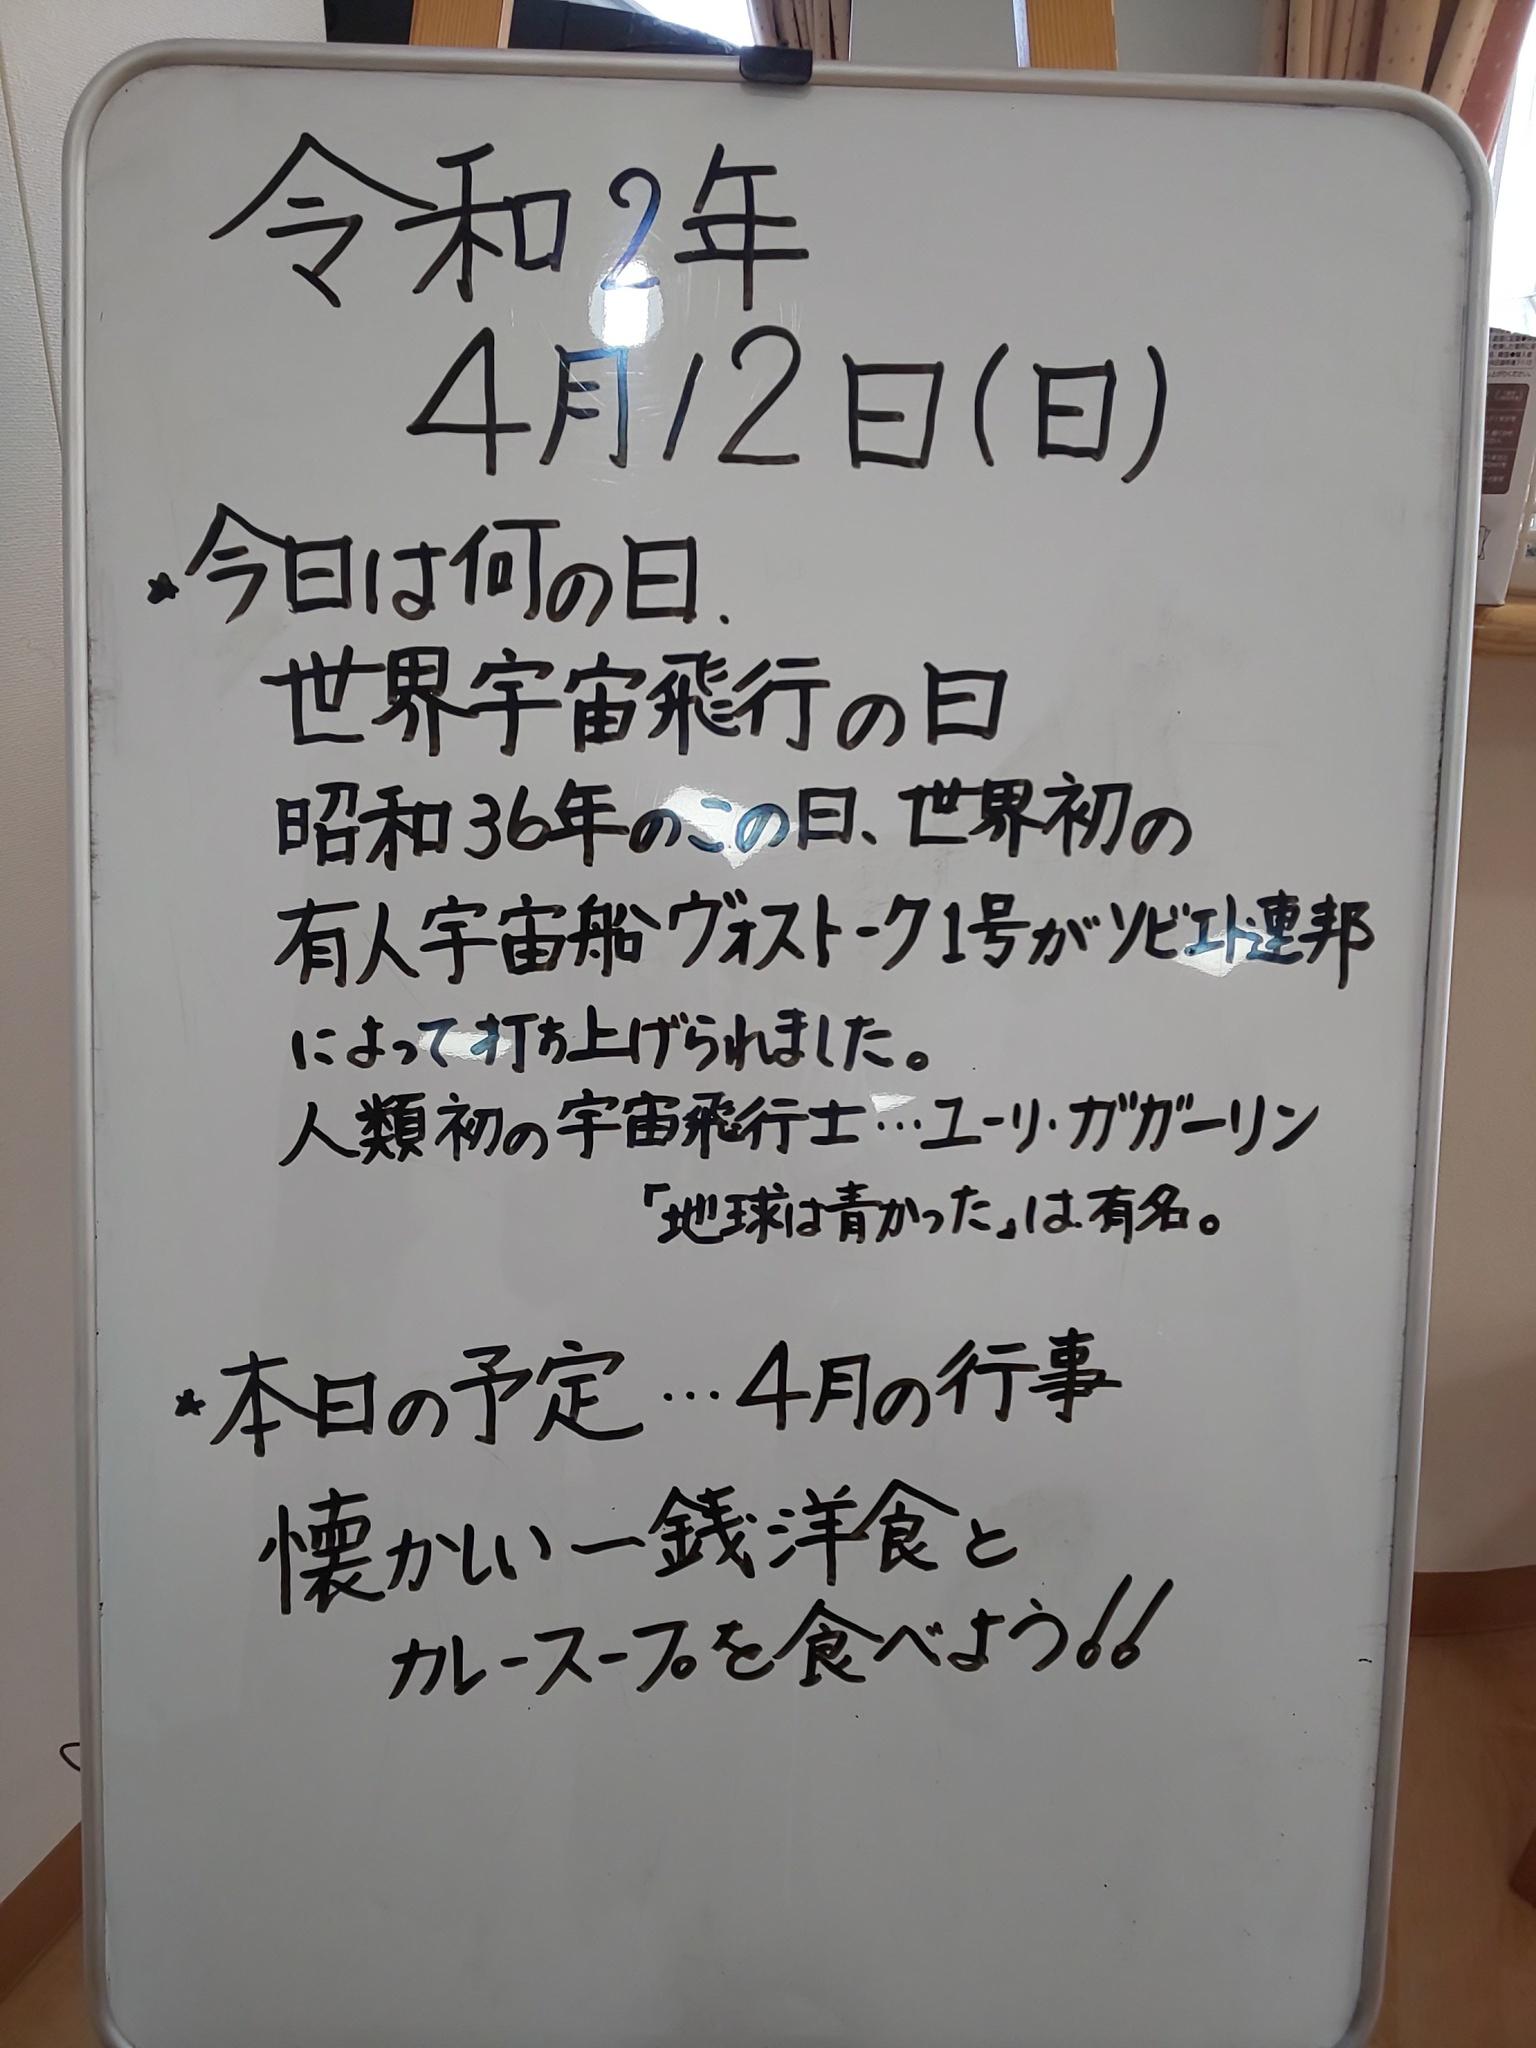 令和2年
4月12日(日)
★今日は何の日.
世界宇宙飛行の日
昭和36年のこの日、世界初の
有人宇宙船ヴォストーク1号がソビエト連邦
によって打ち上げられました。
人類初の宇宙飛行士…ユーリ・ガガーリン
「地球は青かった」は有名。
★本日の予定…4月の行事
懐かしい一銭洋食と
カレースープを食べよう!!